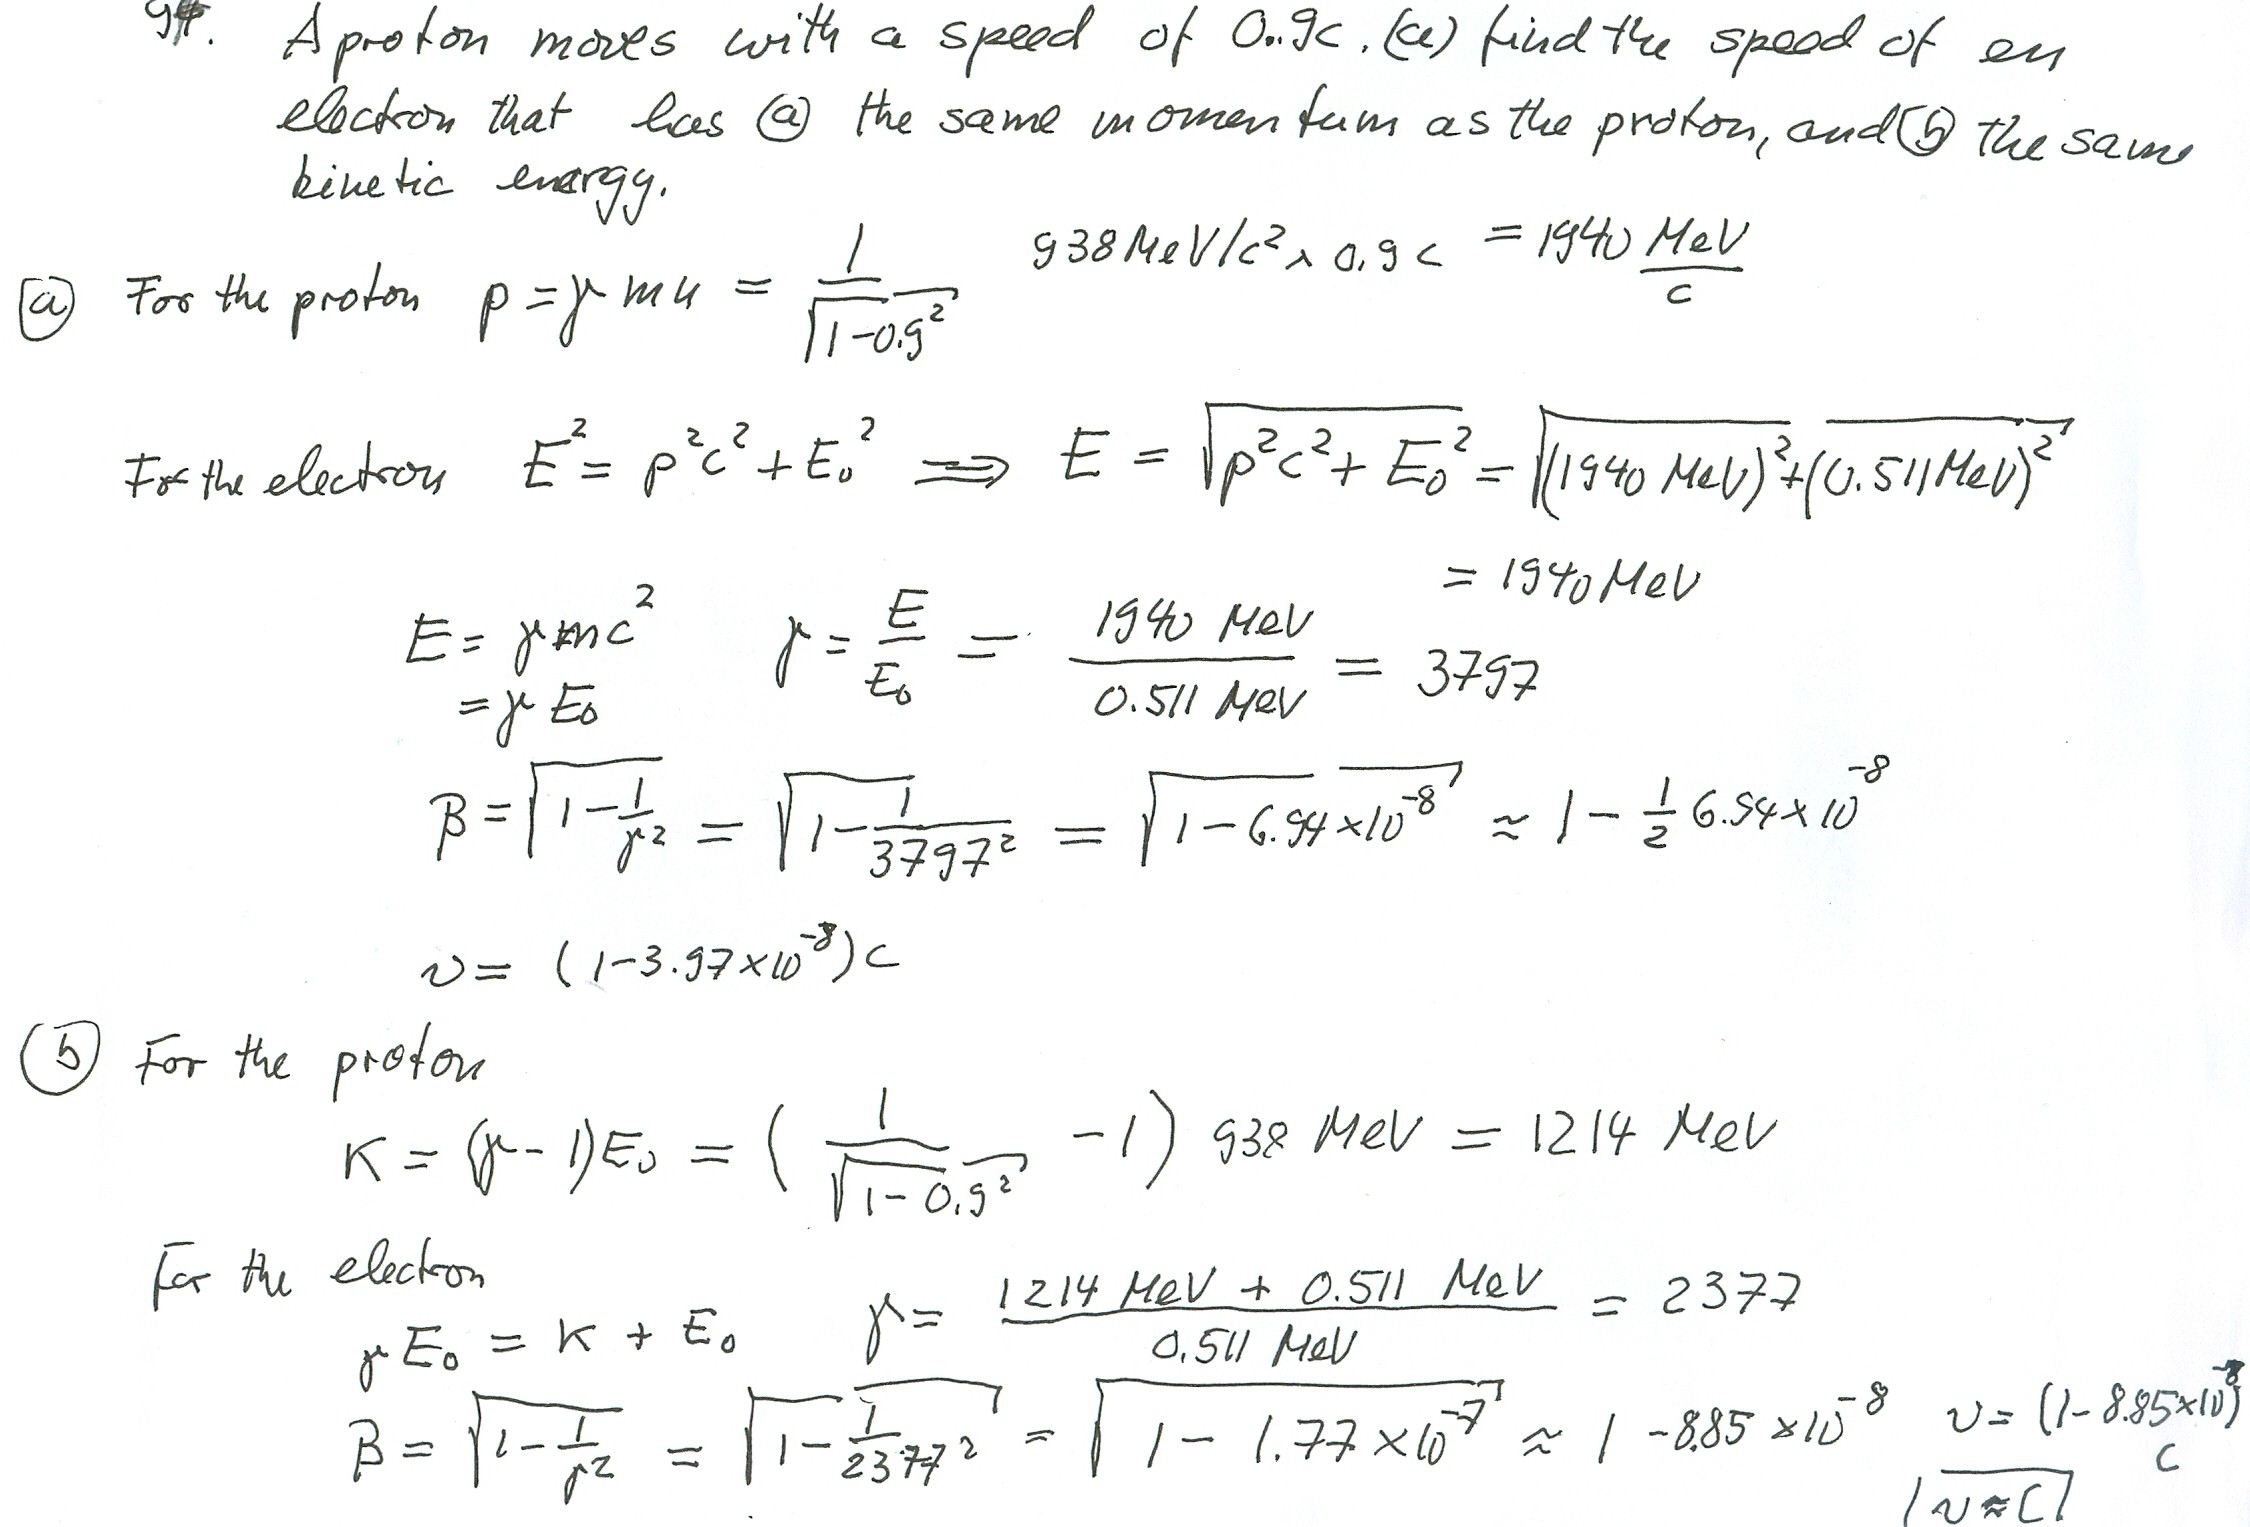 94. A proton moves with a speed of 0.9c. (a) find the speed of en
electron that has ⓐ the same momentum as the proton, and ⓑ the same
kinetic energy.
ⓐ For the proton p = γ m u = 1/√(1-0.9²) 938 MeV/c² × 0.9 c = 1940 MeV/c
For the electron E² = p²c² + E₀² ⟹ E = √(p²c² + E₀²) = √((1940 MeV)² + (0.511 MeV)²)
= 1940 MeV
E = γ mc² γ = E/E₀ = 1940 MeV/0.511 MeV = 3797
= γ E₀
β = √(1 - 1/γ²) = √(1 - 1/3797²) = √(1 - 6.94 × 10⁻⁸) ≈ 1 - 1/2 6.94 × 10⁻⁸
v = (1 - 3.97 × 10⁻⁸) c
ⓑ For the proton
K = (γ - 1) E₀ = (1/√(1-0.9²) - 1) 938 MeV = 1214 MeV
For the electron
γ E₀ = K + E₀ γ = (1214 MeV + 0.511 MeV)/0.511 MeV = 2377
β = √(1 - 1/γ²) = √(1 - 1/2377²) = √(1 - 1.77 × 10⁻⁷) ≈ 1 - 8.85 × 10⁻⁸ v = (1 - 8.85 × 10⁻⁸) c
v ≈ c